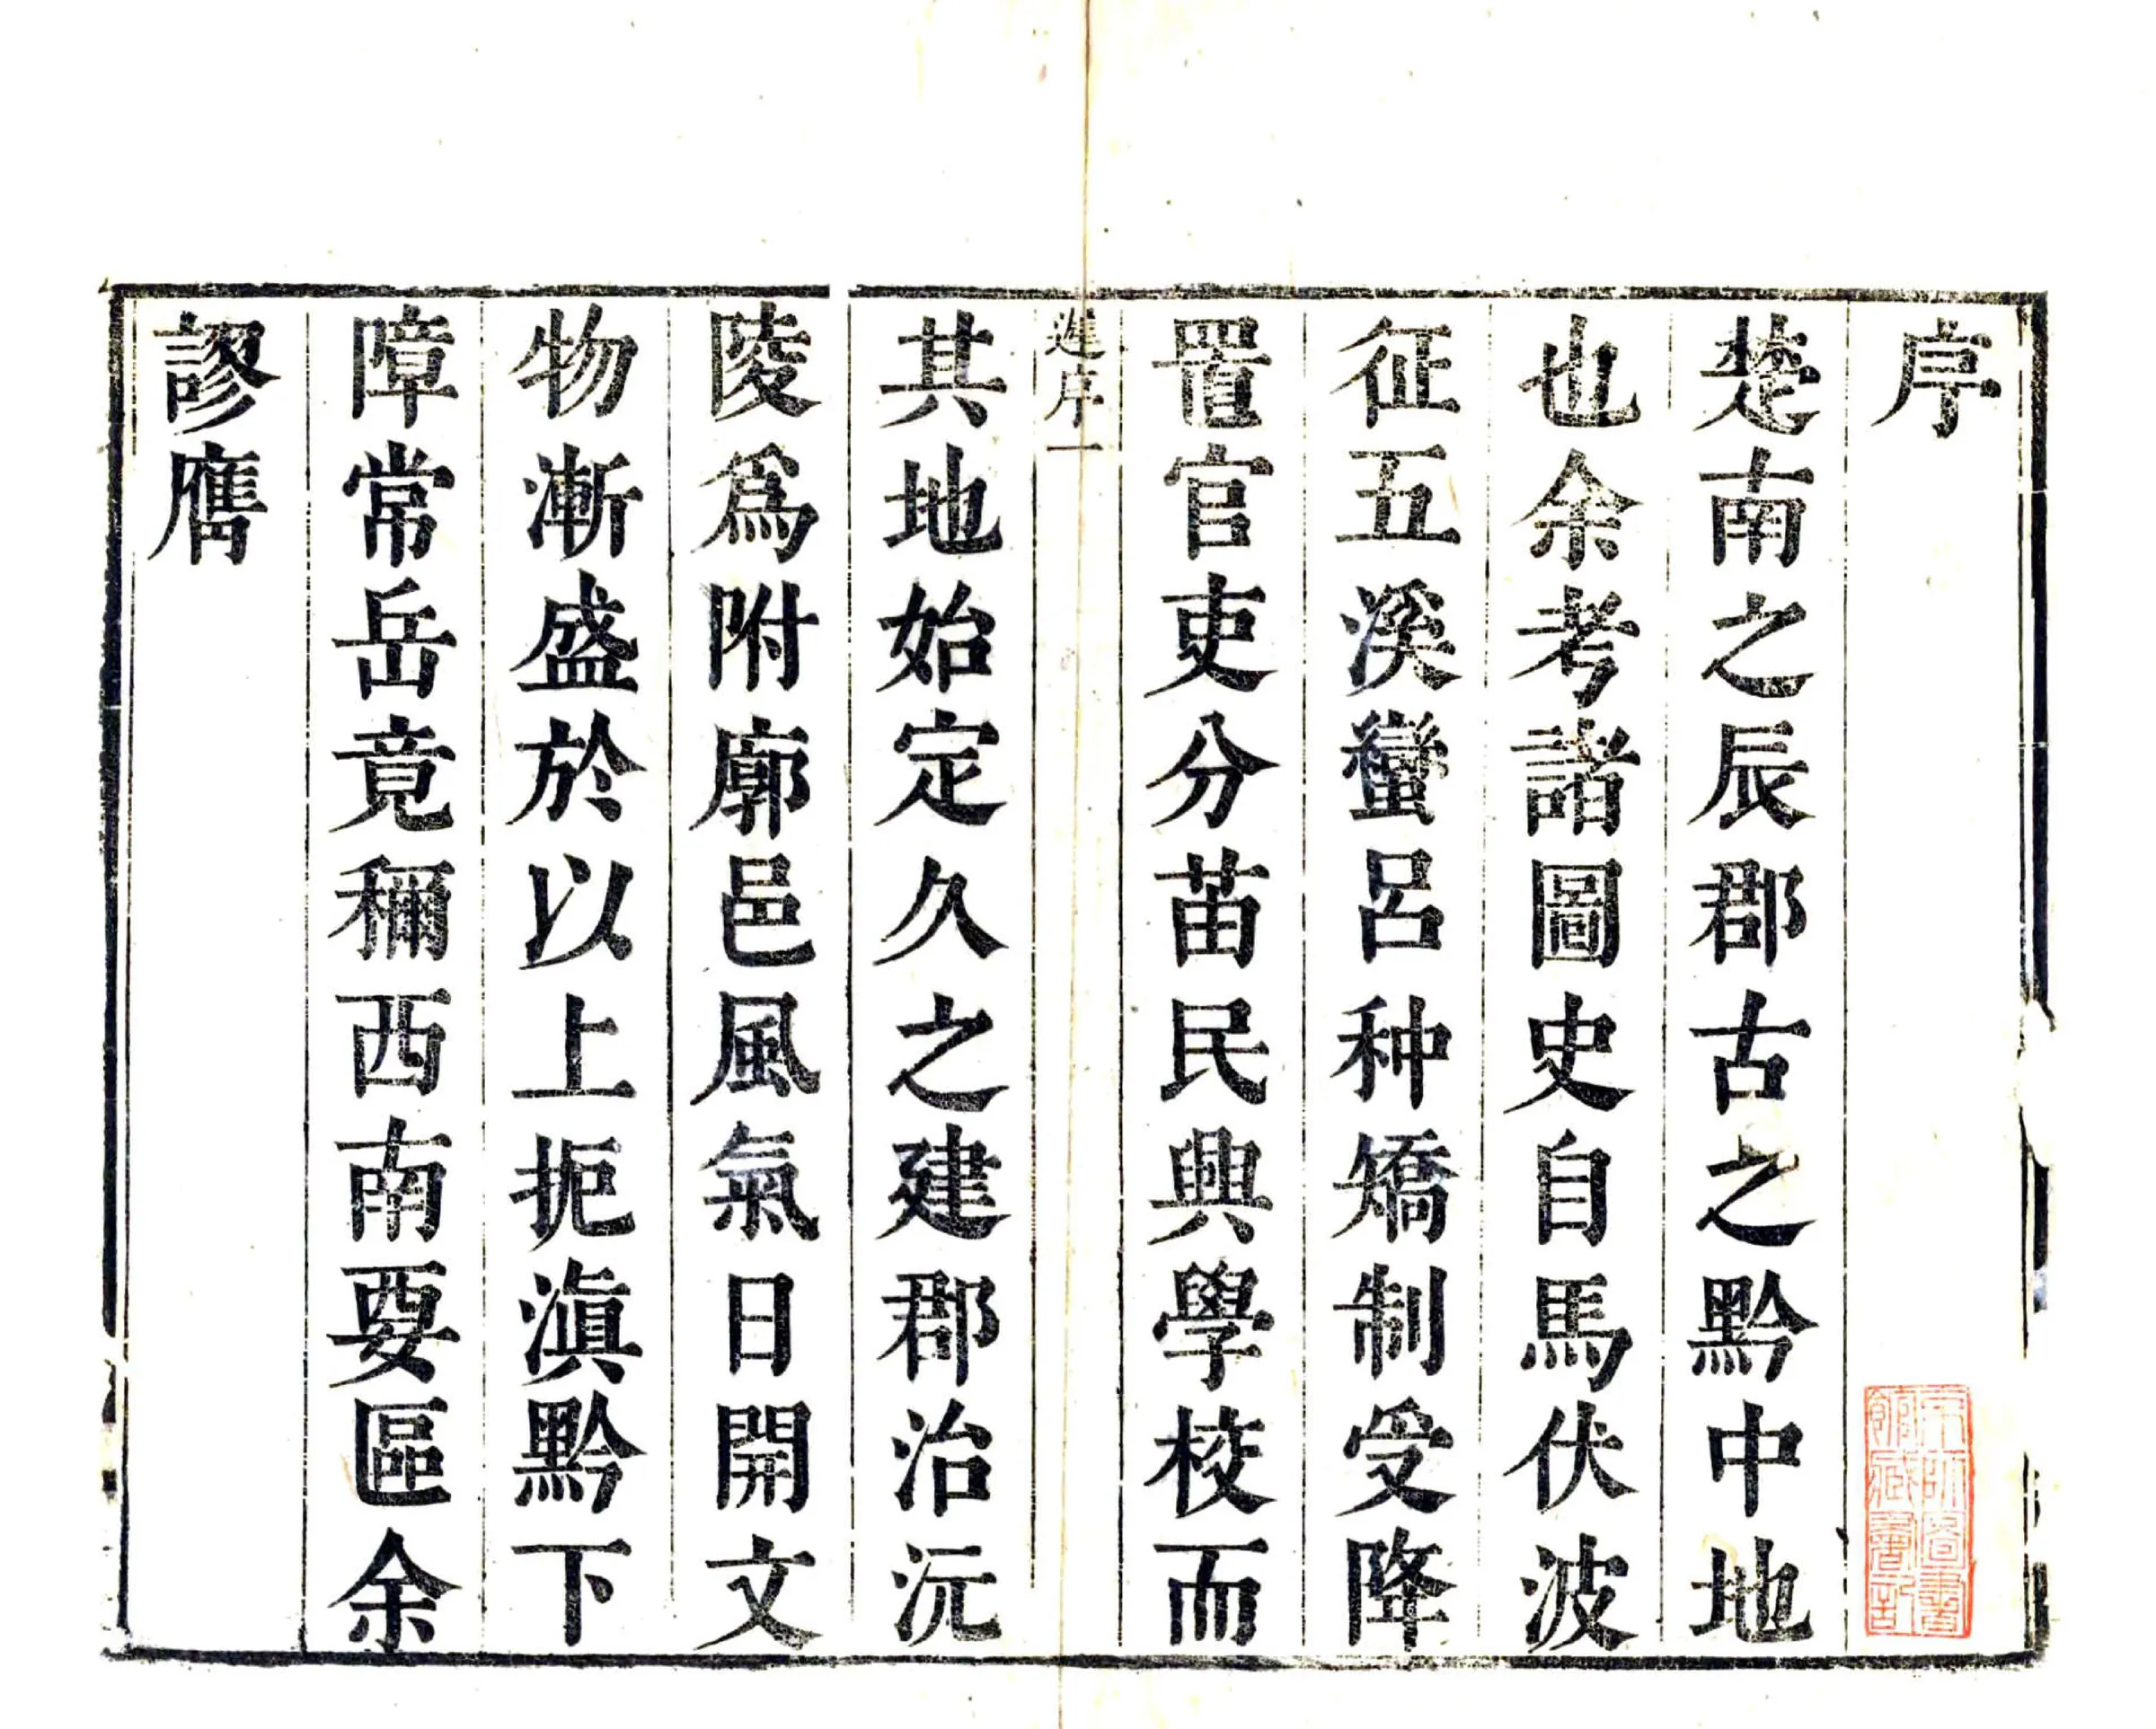 序
楚南之辰郡古之黔中地
也余考諸圖史自馬伏波
征五溪蠻呂种矯制受降
置官吏分苗民興學校而
遲序一
其地始定久之建郡治沅
陵爲附廓邑風氣日開文
物漸盛於以上扼滇黔下
障常岳竟稱西南要區余
謬膺